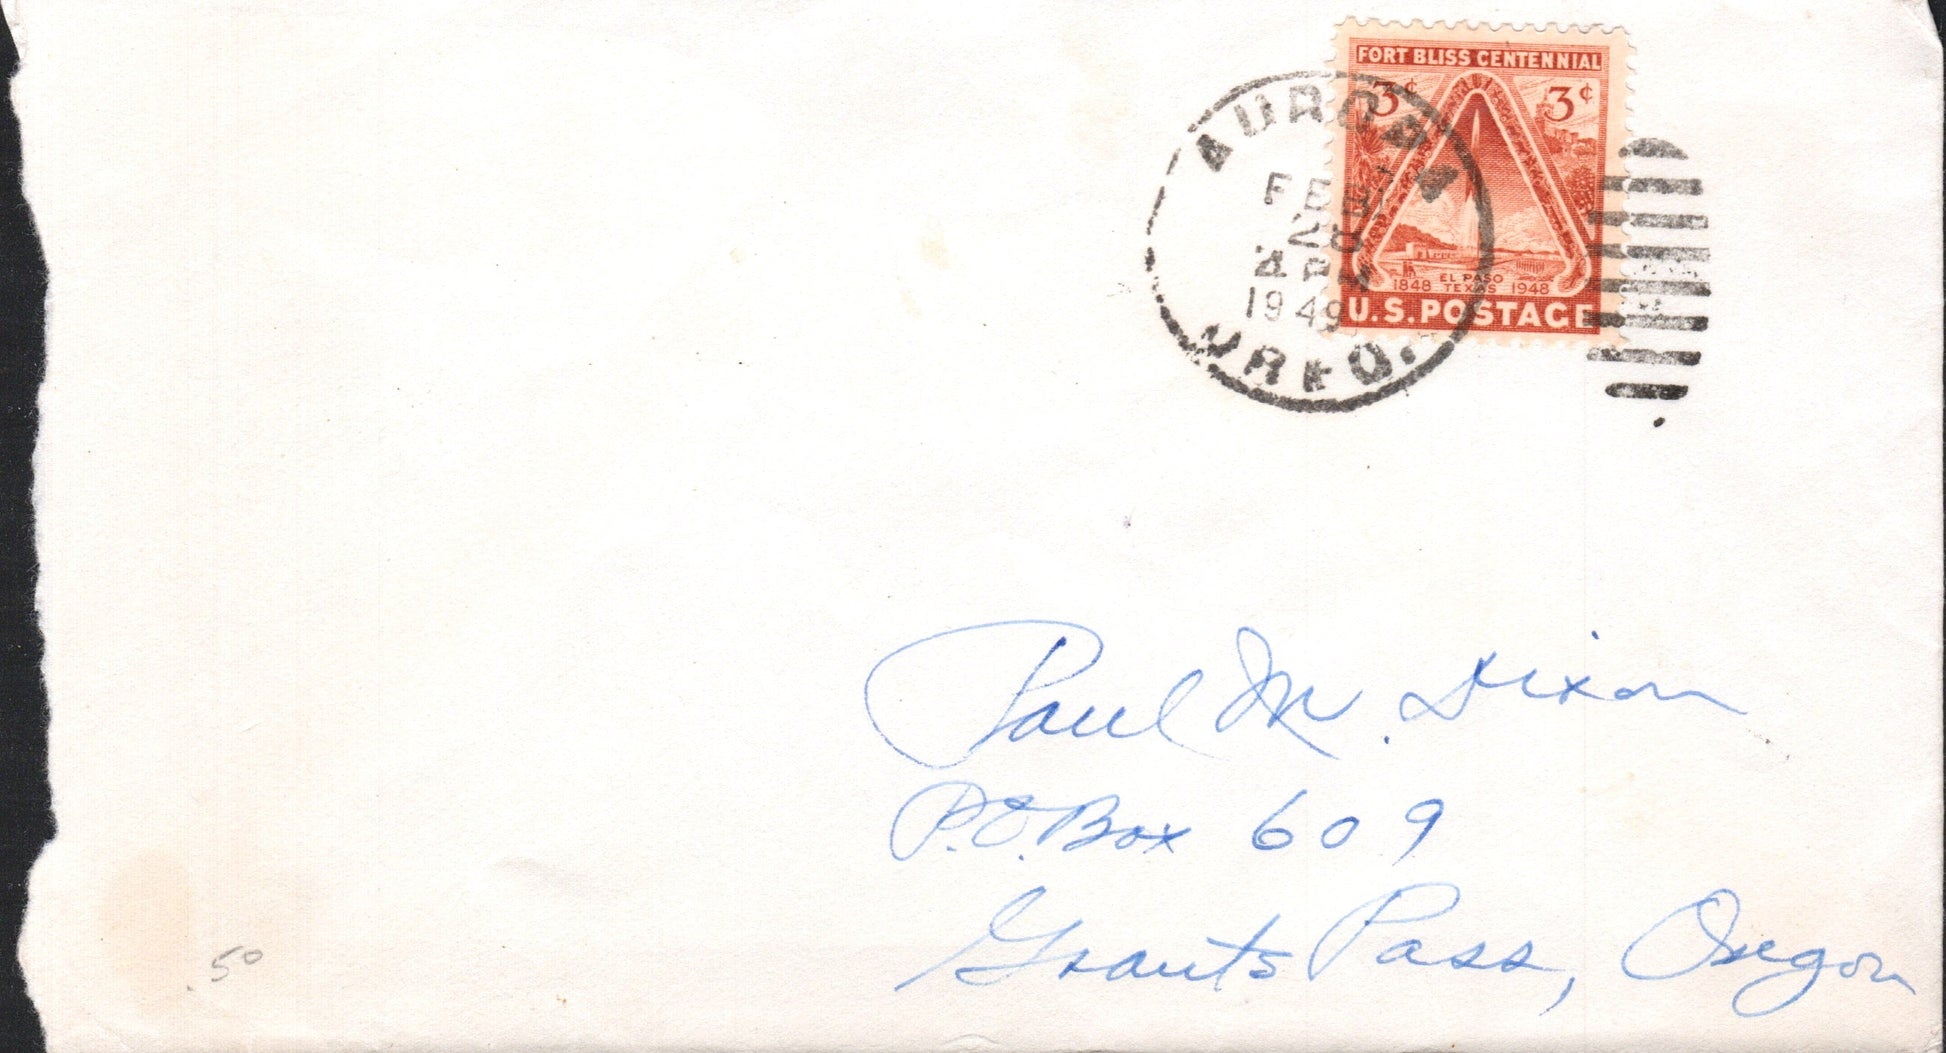 FORT BLISS CENTENNIAL
3¢ 3¢
EL PASO
1848 TEXAS 1948
U.S. POSTAGE
AURORA
FEB
28
4 PM
1949
OREG.
Paul M. Dixon
P.O. Box 609
Grants Pass, Oregon
.50